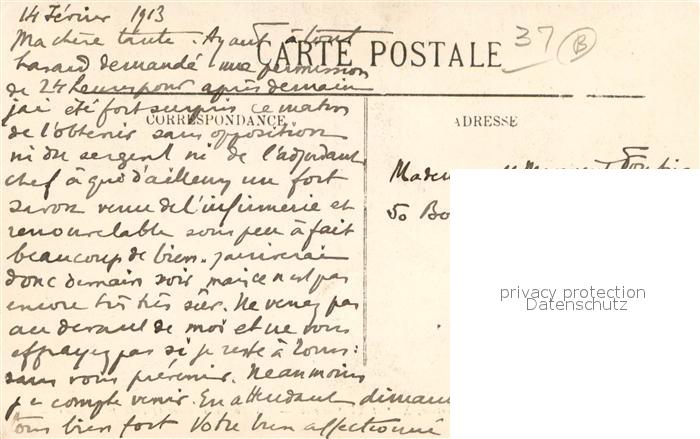 14 Février 1913
Ma chère tante. Ayant à tout
CARTE POSTALE
37 B
hasard demandé une permission
de 24 heures pour après demain
j'ai été fort surpris ce matin
CORRESPONDANCE
ADRESSE
de l'obtenir sans opposition
ni du sergent ni de l'adjudant
chef à qui d'ailleurs un fort
savon venu de l'infirmerie et
renouvelable sous peu à fait
beaucoup de bien. j'arriverai
donc demain soir, mais ce n'est pas
encore très très sûr. Ne venez pas
au devant de moi et ne vous
effrayez pas si je reste à
sans vous prévenir. Neanmoins
je compte venir. En attendant
bien fort Votre bien affectionné
50 Bo
privacy protection
Datenschutz